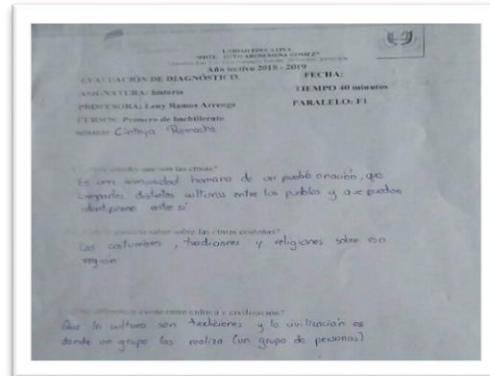 UNIDAD EDUCATIVA
Año lectivo 2018 - 2019
EVALUACIÓN DE DIAGNÓSTICO
FECHA:
ASIGNATURA: historia
TIEMPO 40 minutos
PROFESORA: Leny Ramos Arreaga
PARALELO: F1
CURSO: Primero de bachillerato
NOMBRE: Cinthya
que son las etnias?
Es una comunidad humana de un pueblo o nación, que
comparten distintas culturas entre los pueblos y que puedan
entre sí
saber sobre las etnias
Las costumbres, tradiciones y religiones sobre esa
región
existe entre cultura y civilización?
Que la cultura son tradiciones y la civilización es
donde un grupo las realiza (un grupo de personas)